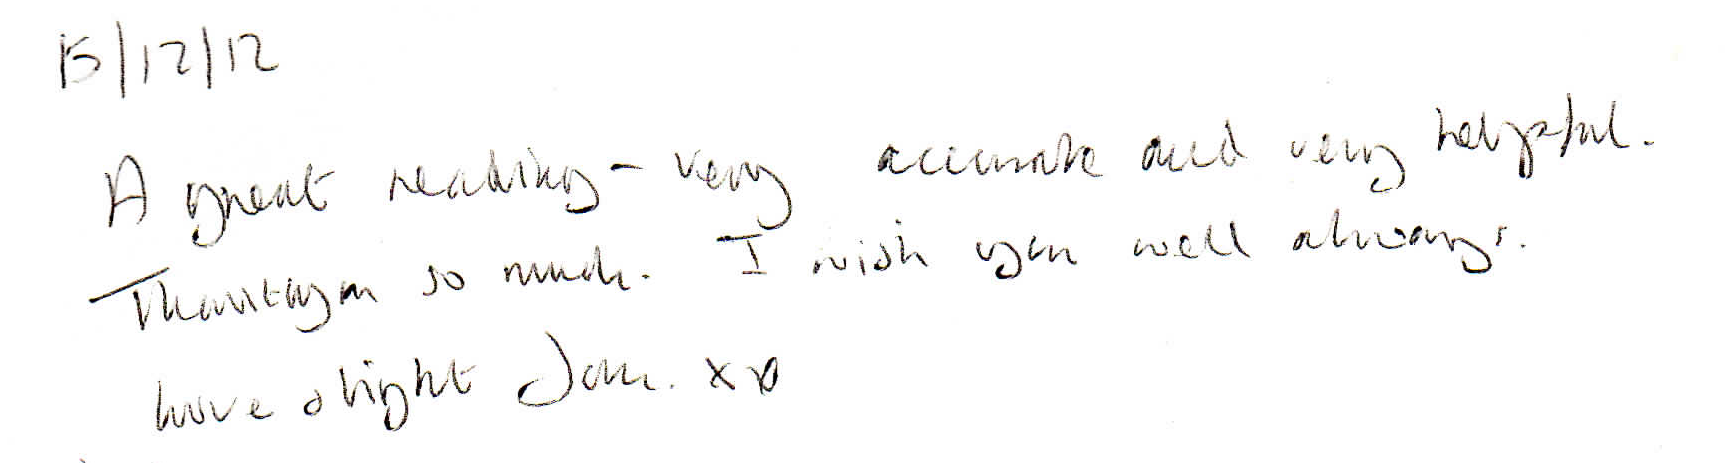 15/12/12
A great reading - very accurate and very helpful.
Thankyou so much. I wish you well always.
love & light xx